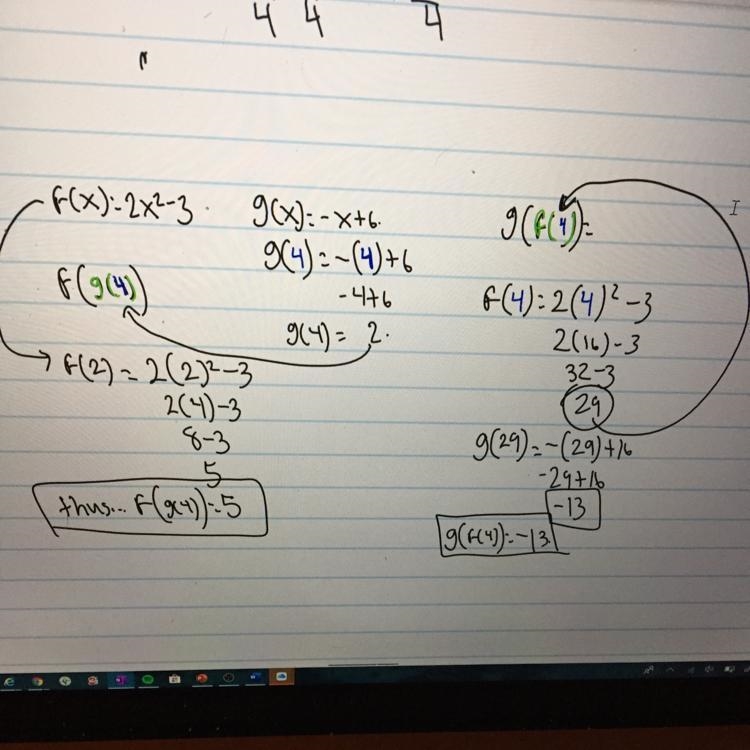 4 4 4
f(x)=2x²-3
f(g(4))
f(2) = 2(2)²-3
2(4)-3
8-3
5
thus... f(g(4))=5
g(x)=-x+6.
g(4)=-(4)+6
-4+6
g(4)= 2.
g(f(4))=
f(4)=2(4)²-3
2(16)-3
32-3
29
g(29)=-(29)+16
-29+16
-13
g(f(4))=-13